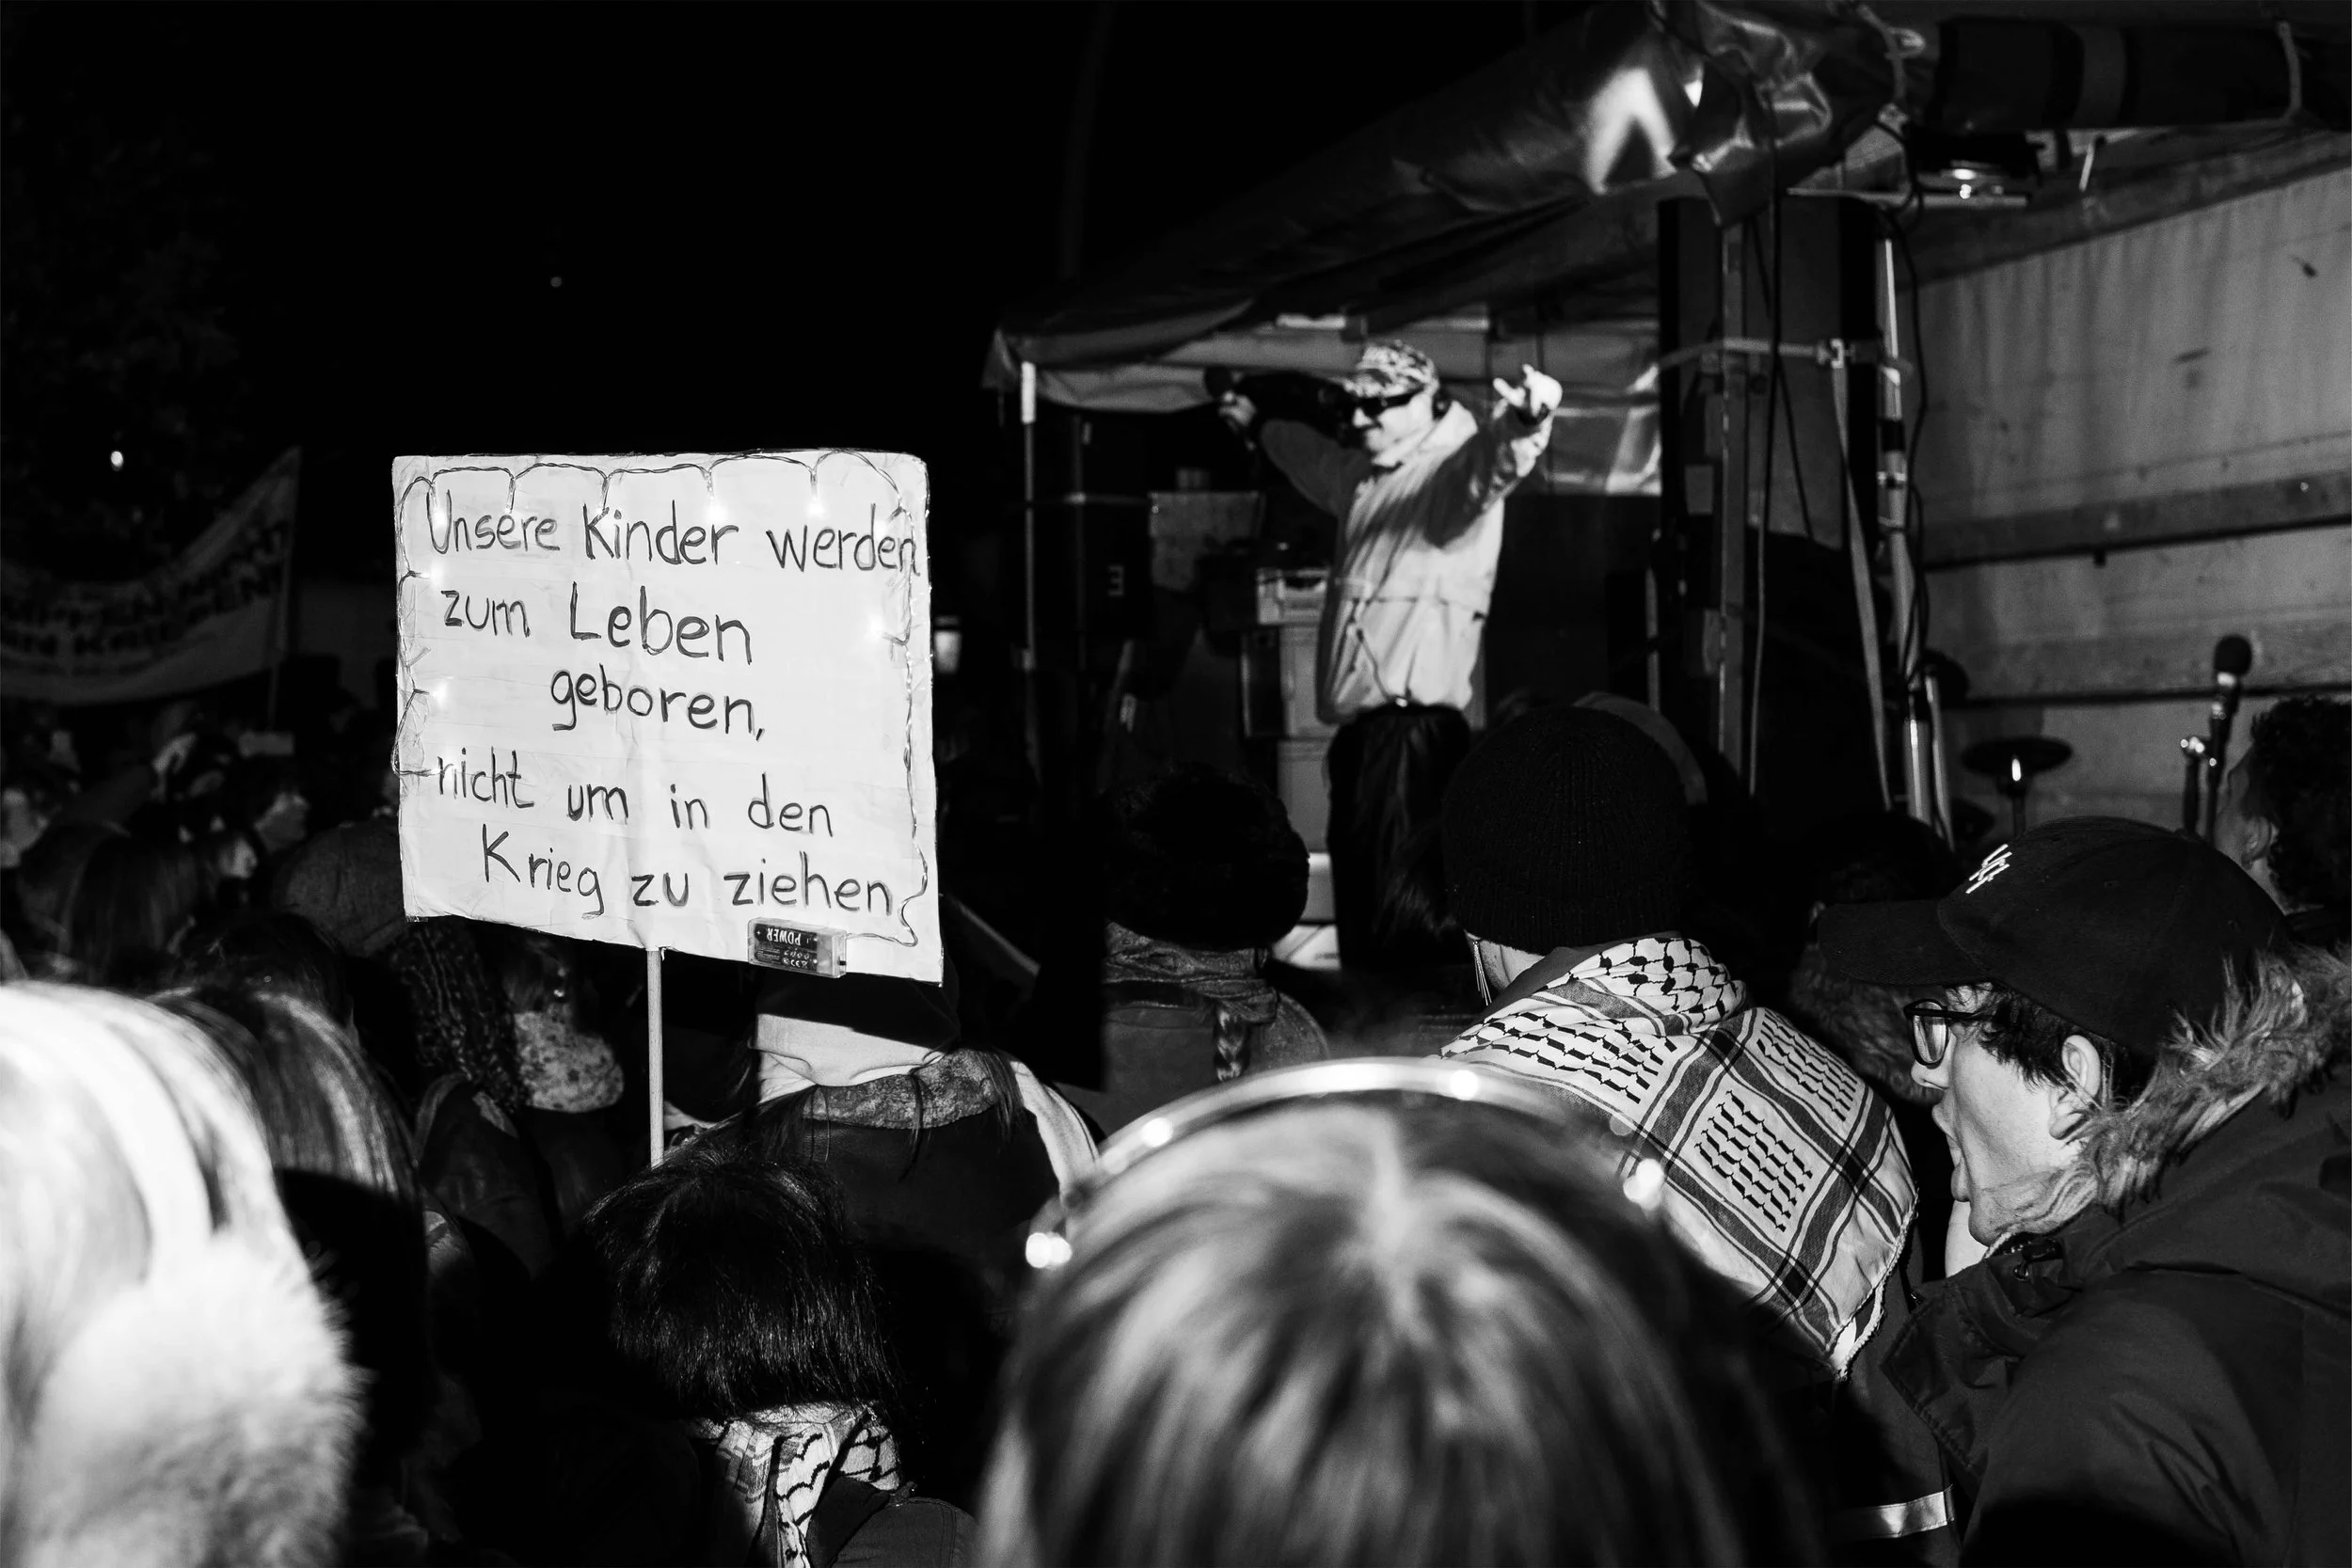 Unsere Kinder werden
zum Leben
geboren,
nicht um in den
Krieg zu ziehen
POWER